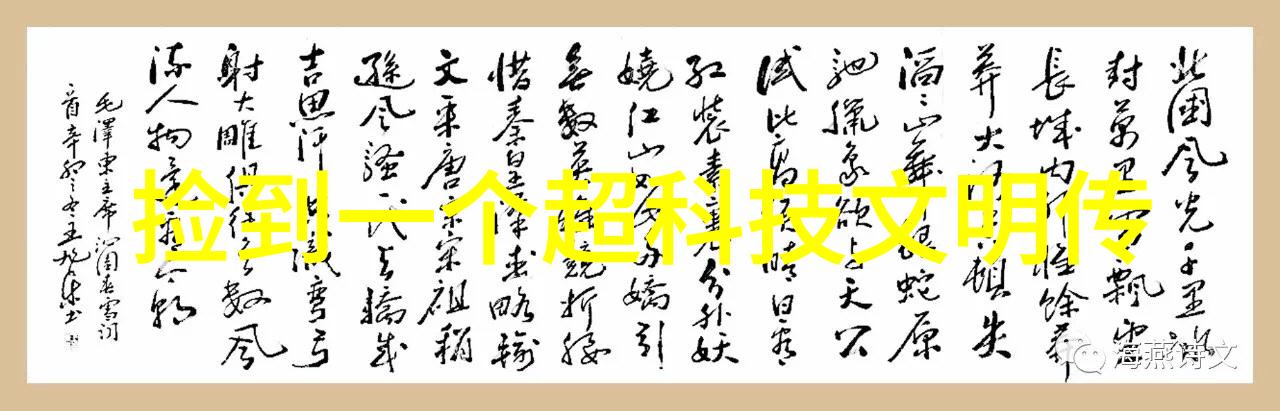 捡到一个超科技文明传
北國风光千里冰
封萬里雪飘望
長城内外惟餘莽
莽大河上下頓失
滔滔山舞银蛇原
馳蠟象欲与天公
试比高须晴日看
红装素裹分外妖
娆江山如此多嬌引
無数英雄竞折腰
惜秦皇漢武略输
文采唐宗宋祖稍
遜风骚一代天骄成
吉思汗只识弯弓
射大雕俱往矣数风
流人物还看今朝
毛澤東主席沁園春雪词
一首辛卯之冬王 书
海燕诗文